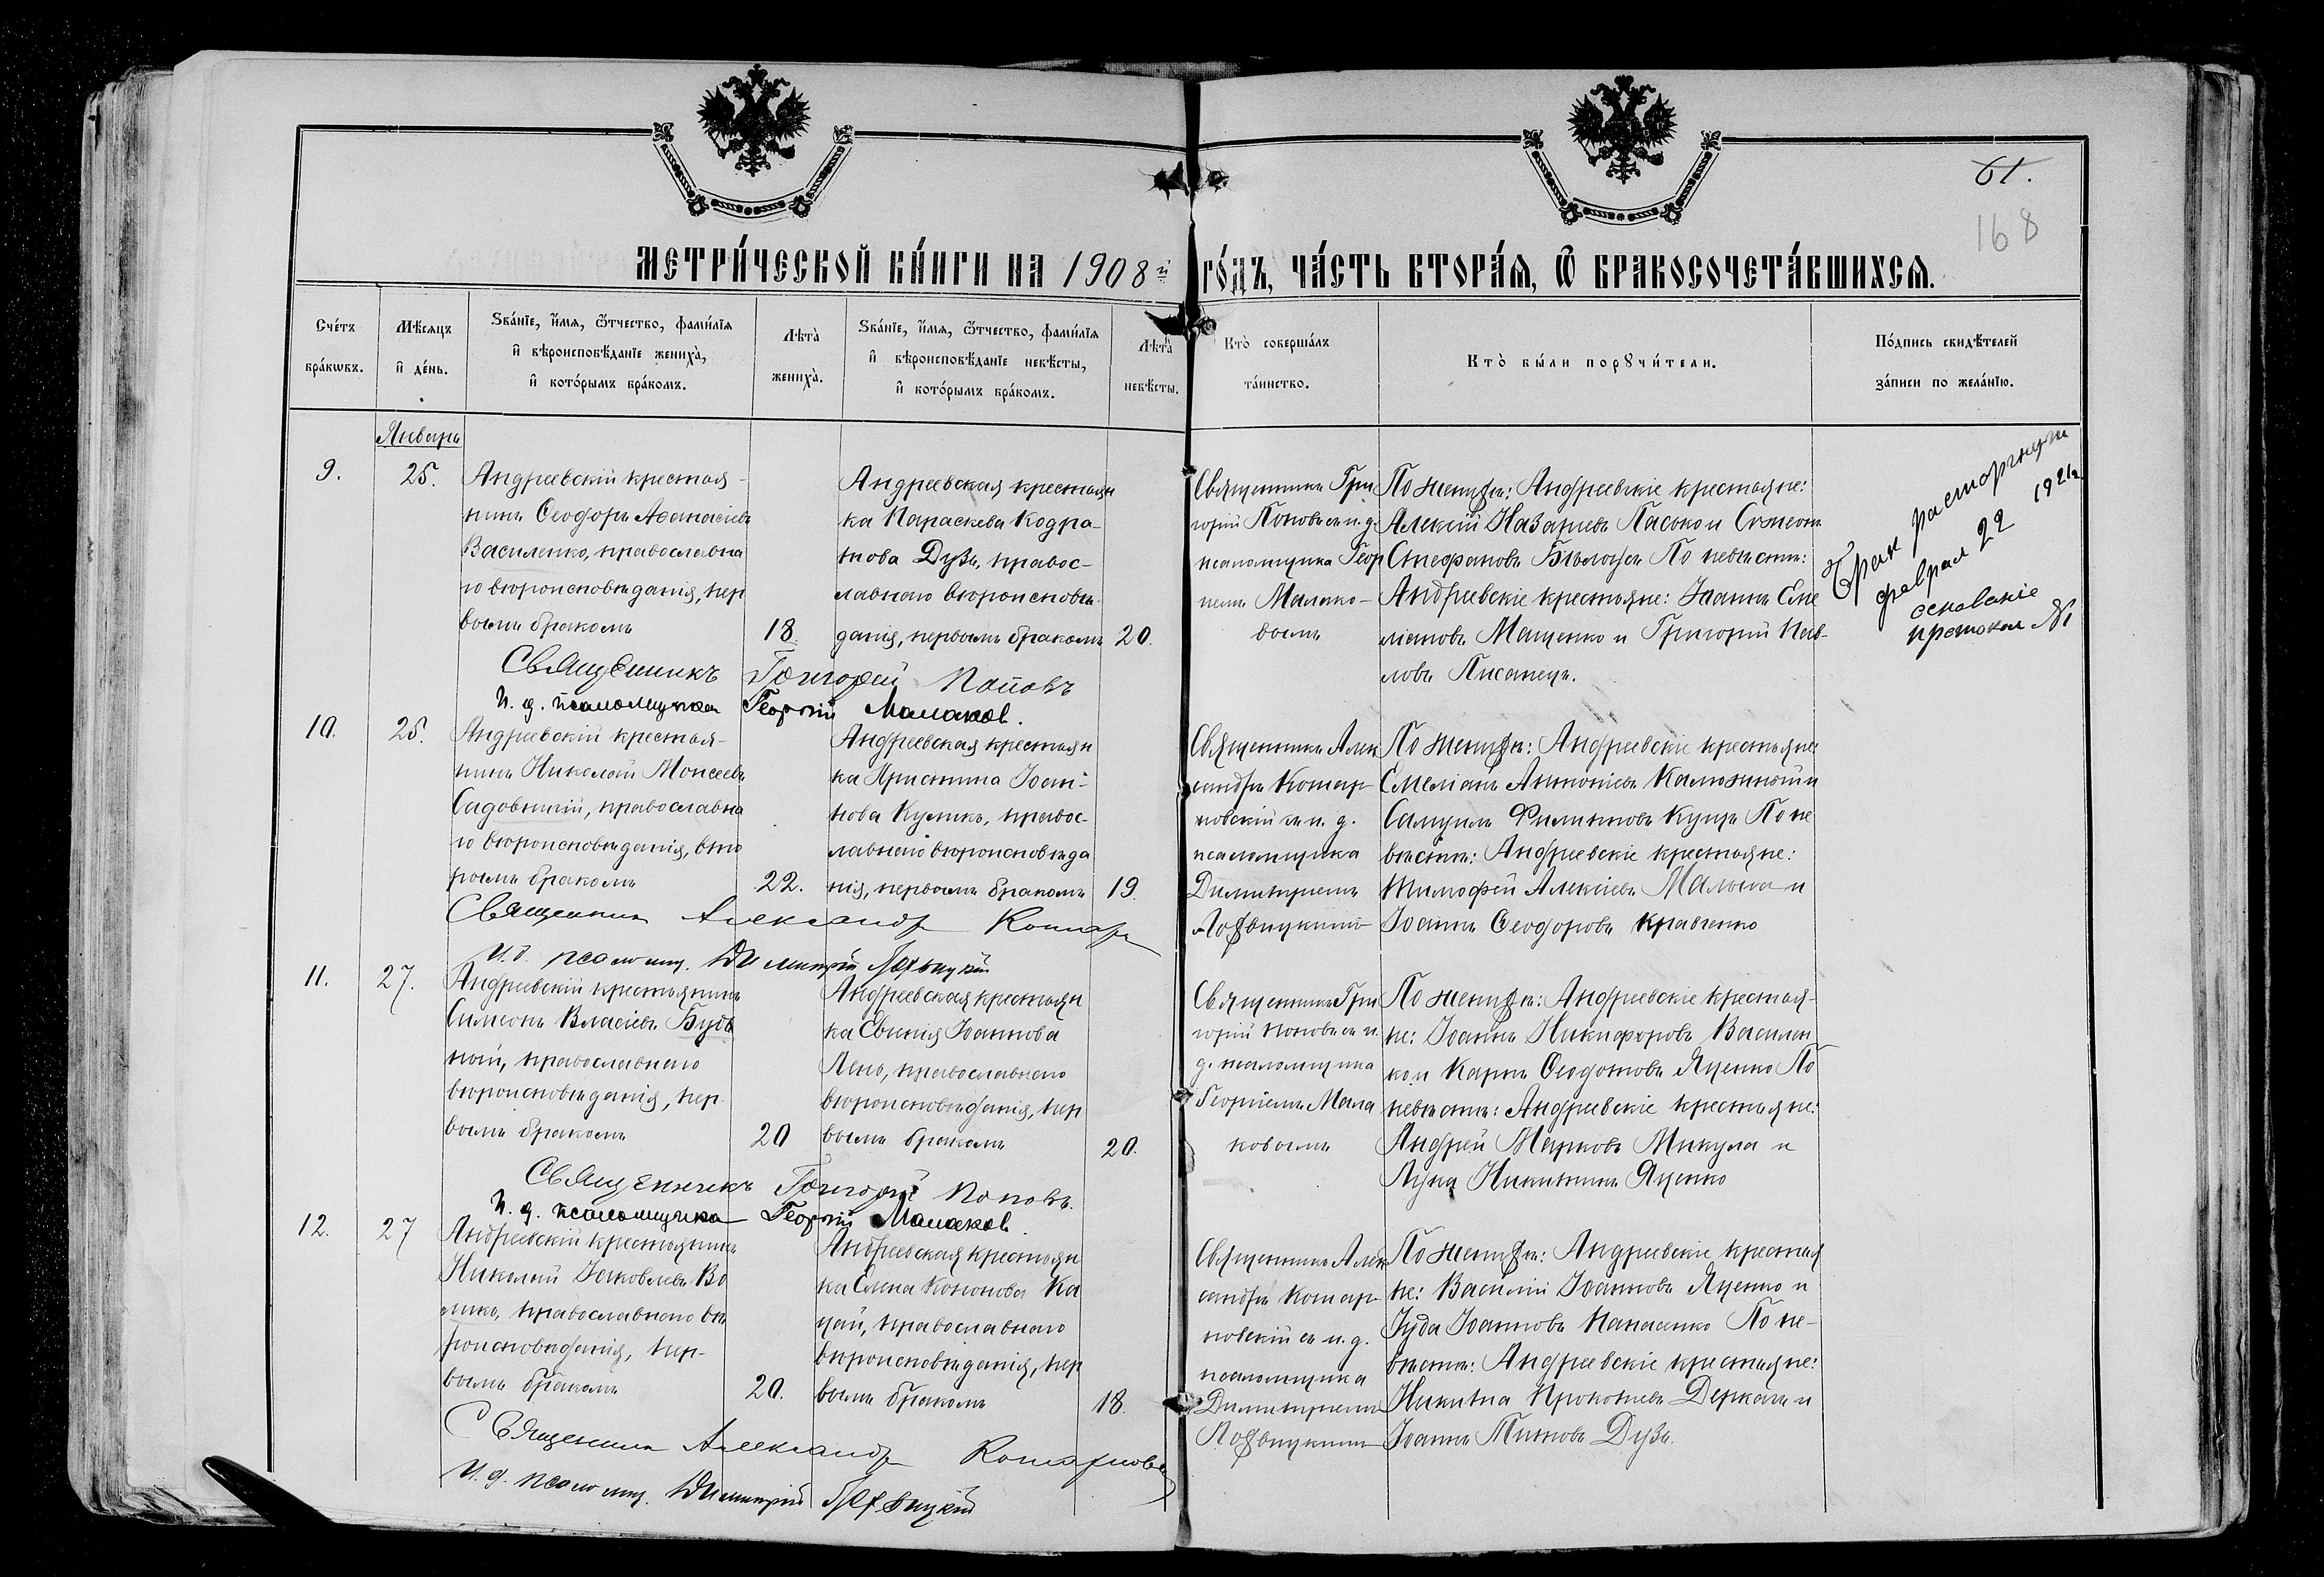 61.
168
МЕТРИ́ЧЕСКОЙ КНИ́ГИ НА 1908й ГО́ДЪ, ЧА́СТЬ ВТОРА́Я, Ѿ БРАКОСОЧЕТА́ВШИХСЯ.
Сче́тъ бра́кѡвъ.
Мѣ́сяцъ и҆ де́нь.
Ѕва́нїе, и҆́мя, ѻ҆́тчество, фами́лїя
и҆ вѣроисповѣ́данїе жениха̀,
и҆ кото́рымъ бра́комъ.
Лѣта̀ жениха̀.
Ѕва́нїе, и҆́мя, ѻ҆́тчество, фами́лїя
и҆ вѣроисповѣ́данїе невѣ́сты,
и҆ кото́рымъ бра́комъ.
Лѣта̀ невѣ́сты.
Кто̀ соверша́лъ
та́инство.
Кто̀ бы́ли порꙋчи́тели.
По́дпись свидѣ́телей
за́писи по жела́нїю.
Январь
9.
25.
Андреевскій крестья-
нинъ Ѳеодоръ Аѳанасіевъ
Василенко, православна
го вѣроисповѣданія, пер
вымъ бракомъ
18.
Андреевская крестьян
ка Параскева Кодра-
това Дузь, правос-
лавнаго вѣроисповѣ-
данія, первымъ бракомъ
20.
Священникъ Гри
горій Поповъ съ и. д.
псаломщика Геор
гіемъ Малако-
вымъ
По женихѣ: Андреевскіе крестьяне:
Алексій Назаріевъ Пасько и Сѵмеонъ
Стефановъ Бѣлоусъ По невѣстѣ:
Андреевскіе крестьяне: Іоаннъ Еме
ліановъ Маценко и Григорій Пав-
ловъ Писанецъ.
Брак расторгнут
феврал 22 1921г
основаніе
протокол №1
Священникъ Григорій Поповъ
И. д. псаломщика Георгій Малаков.
10.
25.
Андреевскій крестья-
нинъ Николай Моисеевъ
Садовничій, православна
го вѣроисповѣданія, вто
рымъ бракомъ
22.
Андреевская крестьян
ка Христина Іоан-
нова Куликъ, правос-
лавнаго вѣроисповѣда
нія, первымъ бракомъ
19.
Священникъ Алек
сандръ Котляр-
новскій съ и. д.
псаломщика
Димитріемъ
По женихѣ: Андреевскіе крестьяне:
Емеліанъ Антоніевъ Калюжный и
Самуилъ Филипповъ Куцъ По не
вѣстѣ: Андреевскіе крестьяне:
Тимоѳей Алексіевъ Малыш и
Іоаннъ Ѳеодоровъ Кравченко
Священникъ Александръ
и. д. псаломщ. Димитрій
11.
27.
Андреевскій крестьянинъ
Симеонъ Власіевъ Будь
ной, православнаго
вѣроисповѣданія, пер-
вымъ бракомъ
20
Андреевская крестьян
ка Евѳимія Іоаннова
Лень, православнаго
вѣроисповѣданія, пер
вымъ бракомъ
20.
Священникъ Гри
горій Поповъ съ и.
д. псаломщика
Георгіемъ Мала
ковымъ
По женихѣ: Андреевскіе крестья-
не: Іоаннъ Никифоровъ Василен
ко и Карпъ Ѳеодотовъ Яценко По
невѣстѣ: Андреевскіе крестьяне:
Андрей Марковъ Микула и
Лука Никитинъ Яценко
Священникъ Григорій Поповъ.
И. д. псаломщика Георгій Малаков.
12.
27
Андреевскій крестьянинъ
Николай Іаковлевъ Во
лико, православнаго вѣ
роисповѣданія, пер-
вымъ бракомъ
20.
Андреевская крестьян
ка Елена Кононова Ка
цай, православнаго
вѣроисповѣданія, пер
вымъ бракомъ
18.
Священникъ Алек
сандръ Котляр-
новскій съ и. д.
псаломщика
Димитріемъ
По женихѣ: Андреевскіе крестья
не: Василій Іоанновъ Яценко и
Іуда Іоанновъ Панасенко По не-
вѣстѣ: Андреевскіе крестьяне:
Никита Прокопіевъ Деркачъ и
Іоаннъ Титовъ Дузь.
Священникъ Александръ
И. д. псаломщ. Димитрій